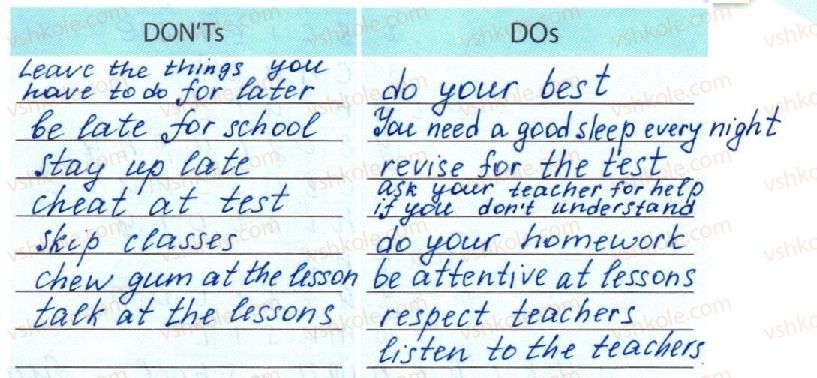 DON'Ts
Leave the things you
have to do for later
be late for school
stay up late
cheat at test
skip classes
chew gum at the lesson
talk at the lessons
DOs
do your best
You need a good sleep every night
revise for the test
ask your teacher for help
if you don't understand
do your homework
be attentive at lessons
respect teachers
listen to the teachers